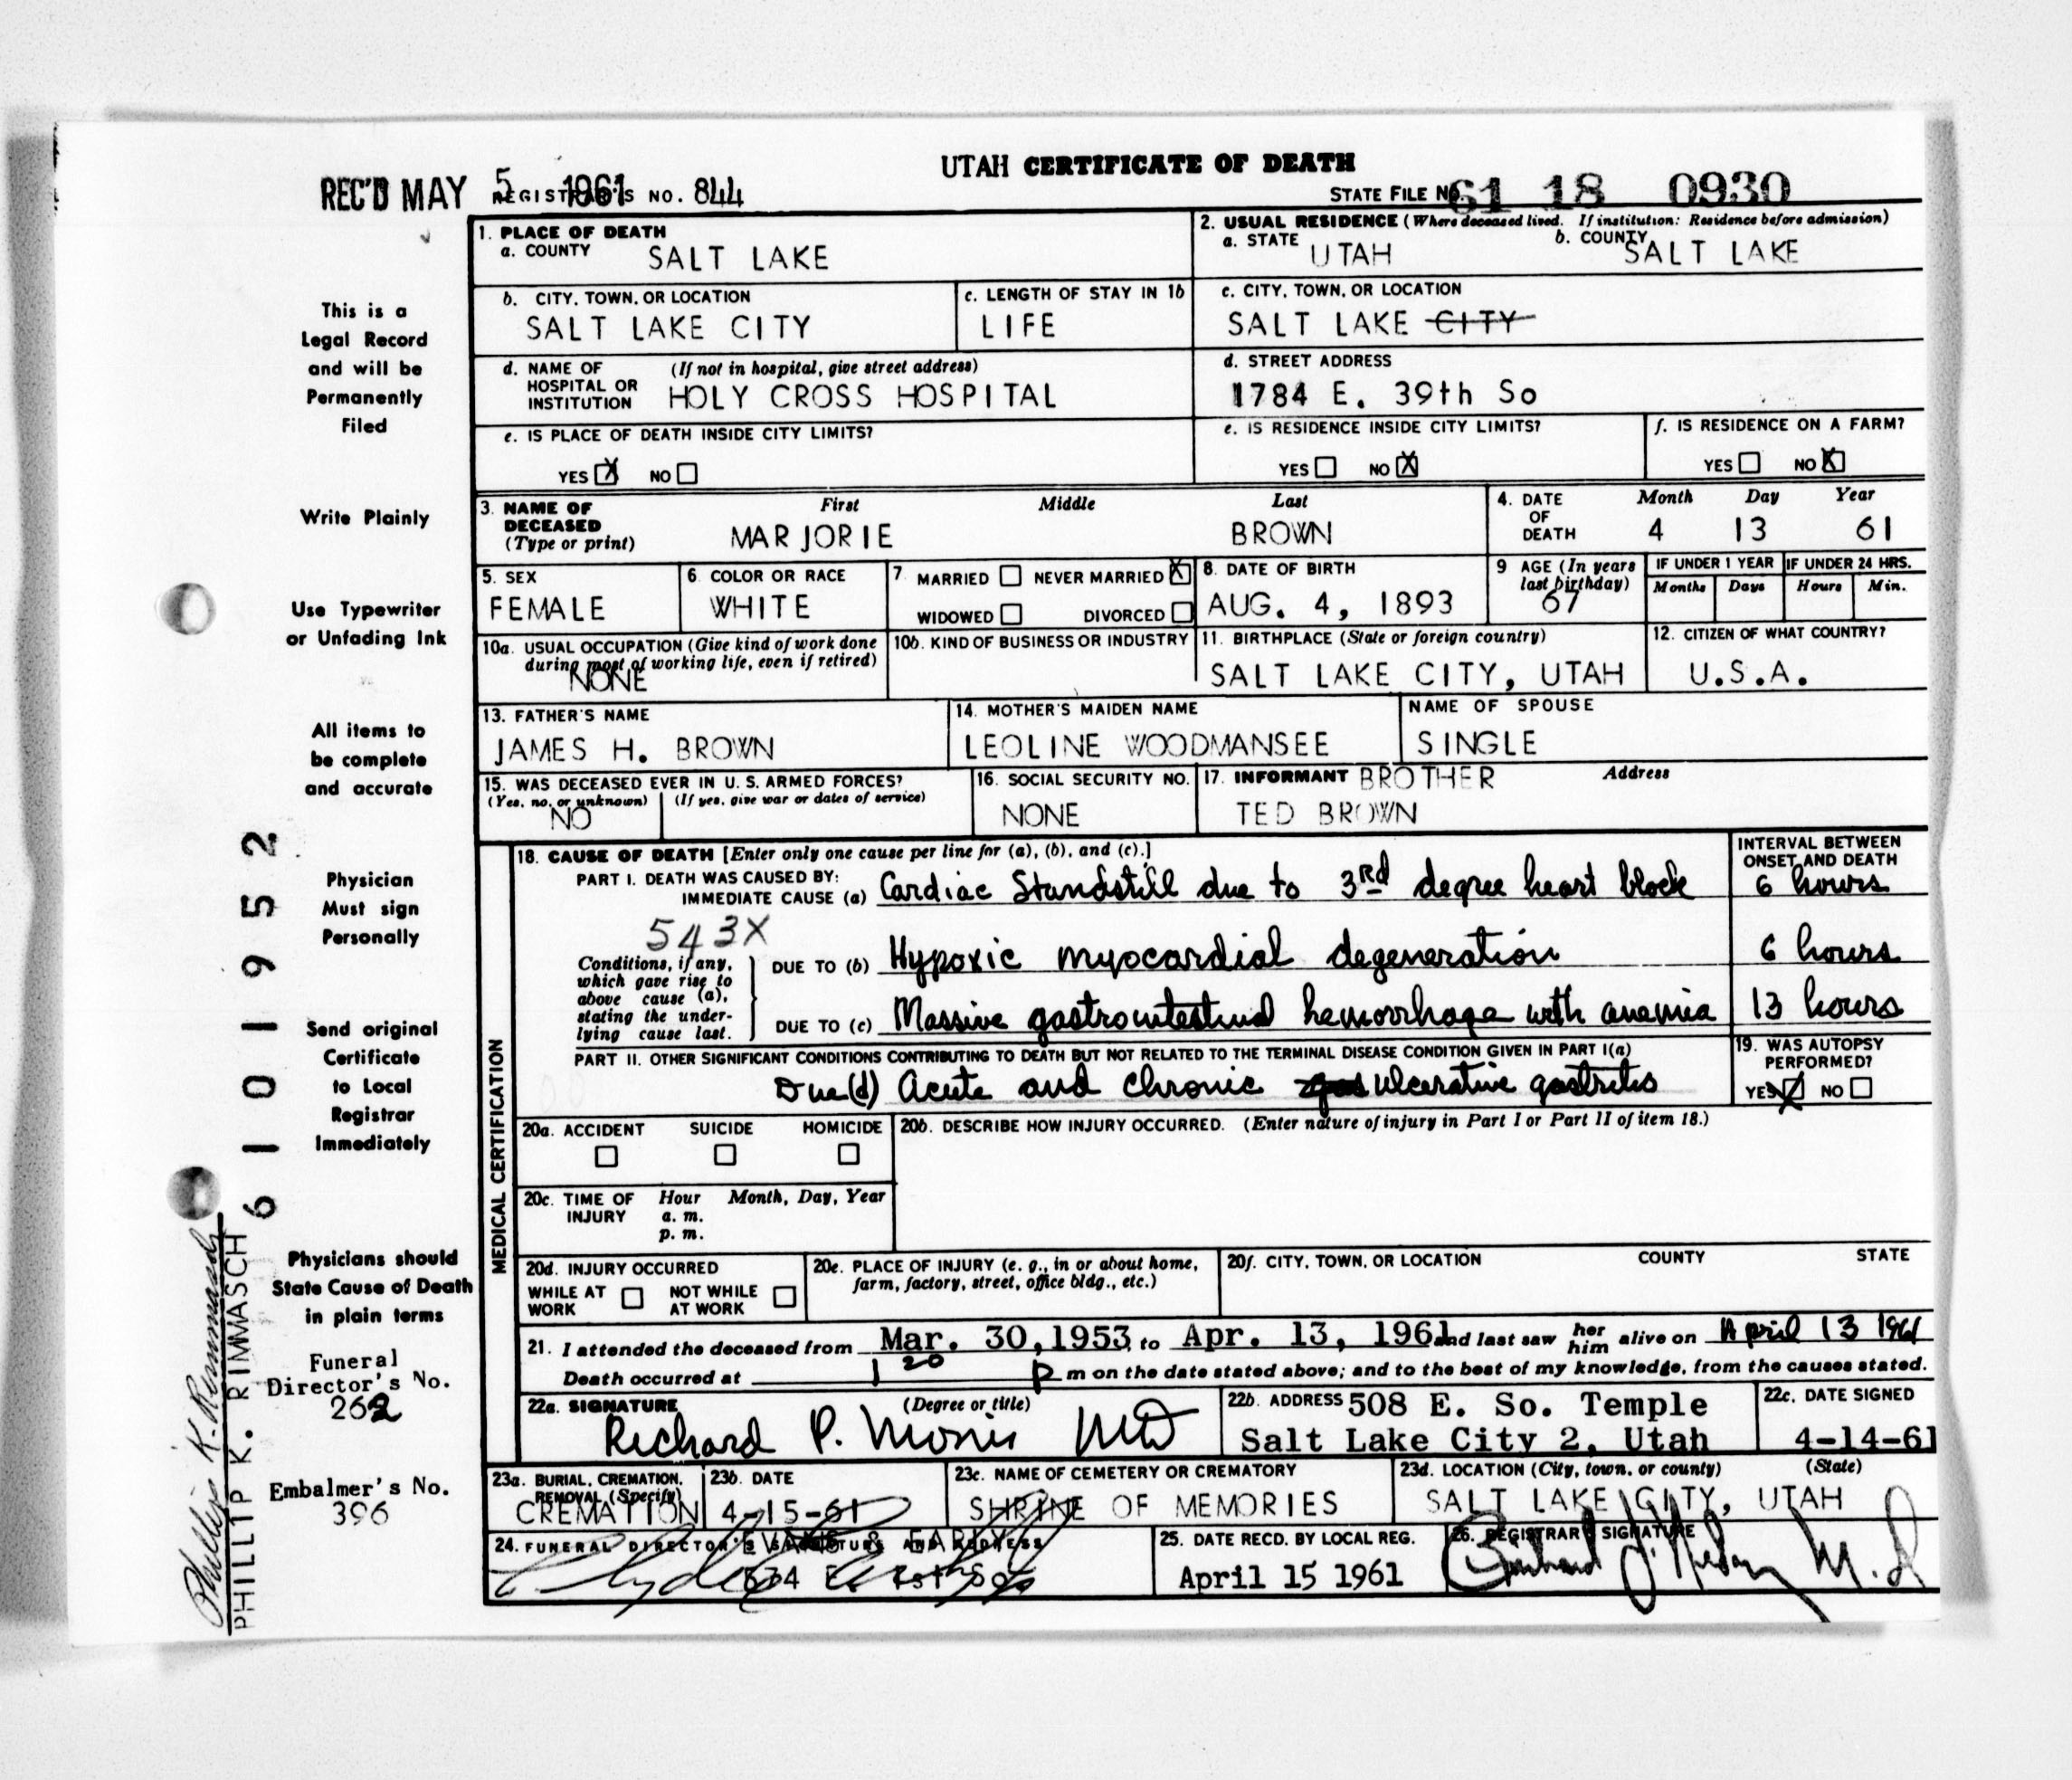 UTAH CERTIFICATE OF DEATH
REC'D MAY 5 1961 REGISTRAR'S NO. 844
STATE FILE NO. 61 18 0930
1. PLACE OF DEATH
a. COUNTY SALT LAKE
2. USUAL RESIDENCE (Where deceased lived. If institution: Residence before admission)
a. STATE UTAH b. COUNTY SALT LAKE
b. CITY, TOWN, OR LOCATION
SALT LAKE CITY
c. LENGTH OF STAY IN 1b
LIFE
c. CITY, TOWN, OR LOCATION
SALT LAKE CITY
d. NAME OF HOSPITAL OR INSTITUTION (If not in hospital, give street address)
HOLY CROSS HOSPITAL
d. STREET ADDRESS
1784 E. 39th So
e. IS PLACE OF DEATH INSIDE CITY LIMITS?
YES X NO
e. IS RESIDENCE INSIDE CITY LIMITS?
YES NO X
f. IS RESIDENCE ON A FARM?
YES NO X
3. NAME OF DECEASED (Type or print)
First Middle Last
MARJORIE BROWN
4. DATE OF DEATH
Month Day Year
4 13 61
5. SEX
FEMALE
6. COLOR OR RACE
WHITE
7. MARRIED NEVER MARRIED X
WIDOWED DIVORCED
8. DATE OF BIRTH
AUG. 4, 1893
9 AGE (In years last birthday)
67
IF UNDER 1 YEAR IF UNDER 24 HRS.
Months Days Hours Min.
10a. USUAL OCCUPATION (Give kind of work done during most of working life, even if retired)
NONE
10b. KIND OF BUSINESS OR INDUSTRY
11. BIRTHPLACE (State or foreign country)
SALT LAKE CITY, UTAH
12. CITIZEN OF WHAT COUNTRY?
U.S.A.
13. FATHER'S NAME
JAMES H. BROWN
14. MOTHER'S MAIDEN NAME
LEOLINE WOODMANSEE
NAME OF SPOUSE
SINGLE
15. WAS DECEASED EVER IN U.S. ARMED FORCES?
(Yes, no, or unknown) (If yes, give war or dates of service)
NO
16. SOCIAL SECURITY NO.
NONE
17. INFORMANT BROTHER Address
TED BROWN
MEDICAL CERTIFICATION
18. CAUSE OF DEATH [Enter only one cause per line for (a), (b), and (c).]
INTERVAL BETWEEN ONSET AND DEATH
PART I. DEATH WAS CAUSED BY:
IMMEDIATE CAUSE (a) Cardiac Standstill due to 3Rd degree heart block 6 hours
543X
Conditions, if any, which gave rise to above cause (a), stating the underlying cause last.
DUE TO (b) Hypoxic myocardial degeneration 6 hours
DUE TO (c) Massive gastrointestinal hemorrhage with anemia 13 hours
PART II. OTHER SIGNIFICANT CONDITIONS CONTRIBUTING TO DEATH BUT NOT RELATED TO THE TERMINAL DISEASE CONDITION GIVEN IN PART I(a)
Due (d) Acute and chronic ulcerative gastritis
19. WAS AUTOPSY PERFORMED?
YES X NO
20a. ACCIDENT SUICIDE HOMICIDE
20b. DESCRIBE HOW INJURY OCCURRED. (Enter nature of injury in Part I or Part II of item 18.)
20c. TIME OF INJURY Hour Month, Day, Year
a. m.
p. m.
20d. INJURY OCCURRED
WHILE AT WORK NOT WHILE AT WORK
20e. PLACE OF INJURY (e. g., in or about home, farm, factory, street, office bldg., etc.)
20f. CITY, TOWN, OR LOCATION COUNTY STATE
21. I attended the deceased from Mar. 30, 1953, to Apr. 13, 1961 and last saw her him alive on April 13 1961
Death occurred at 1 20 P m on the date stated above; and to the best of my knowledge, from the causes stated.
22a. SIGNATURE (Degree or title)
Richard P. Morris MD
22b. ADDRESS 508 E. So. Temple
Salt Lake City 2, Utah
22c. DATE SIGNED
4-14-61
23a. BURIAL, CREMATION, REMOVAL (Specify)
CREMATION
23b. DATE
4-15-61
23c. NAME OF CEMETERY OR CREMATORY
SHRINE OF MEMORIES
23d. LOCATION (City, town, or county) (State)
SALT LAKE CITY, UTAH
24. FUNERAL DIRECTOR'S SIGNATURE AND ADDRESS
EVANS & EARLY
574 E. 1st So.
25. DATE RECD. BY LOCAL REG.
April 15 1961
26. REGISTRAR'S SIGNATURE
This is a
Legal Record
and will be
Permanently
Filed
Write Plainly
Use Typewriter
or Unfading Ink
All items to
be complete
and accurate
Physician
Must sign
Personally
Send original
Certificate
to Local
Registrar
Immediately
Physicians should
State Cause of Death
in plain terms
Funeral
Director's No.
262
Embalmer's No.
396
6101952
Phillip K. Rimmasch
PHILLIP K. RIMMASCH